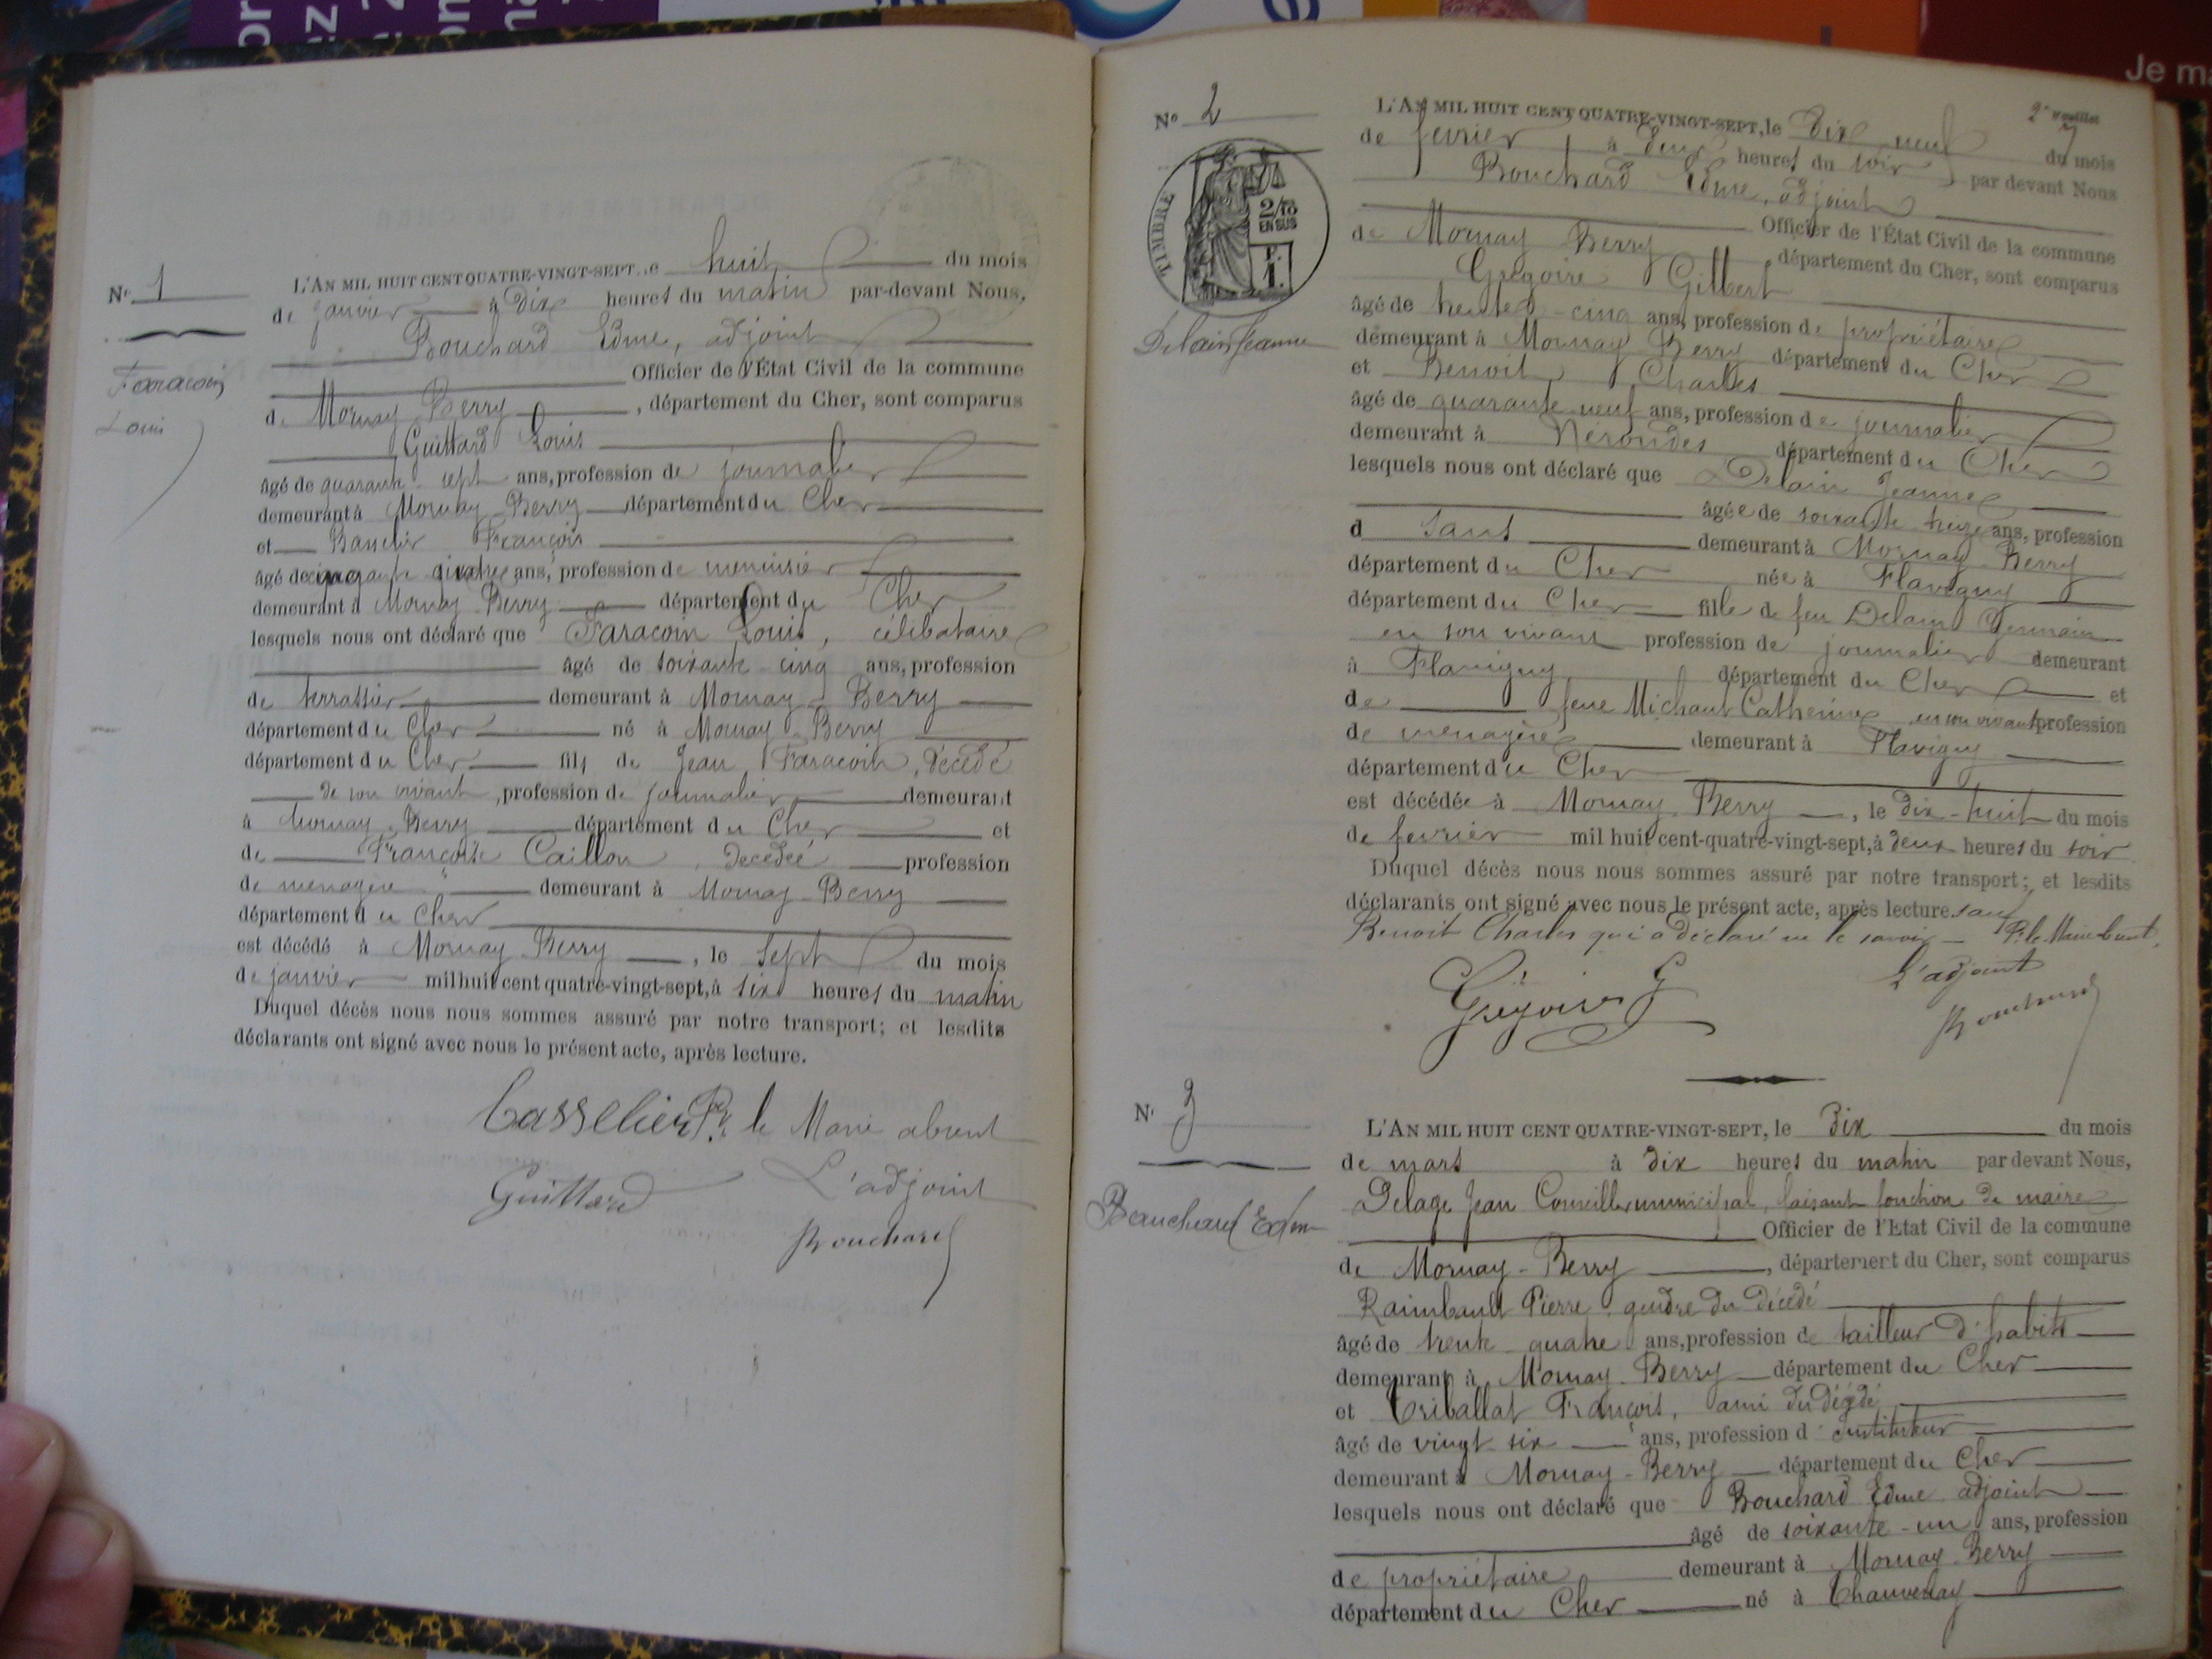 Nº 1
Faracoin
Louis
L'AN MIL HUIT CENT QUATRE-VINGT-SEPT, le huit du mois
de janvier à dix heures du matin par-devant Nous,
Bouchard Edme, adjoint
Officier de l'État Civil de la commune
de Mornay-Berry, département du Cher, sont comparus
Guittard Louis
âgé de quarante-sept ans, profession de journalier
demeurant à Mornay-Berry département du Cher
et François
âgé de cinquante quatre ans, profession de menuisier
demeurant à Mornay-Berry département du Cher
lesquels nous ont déclaré que Faracoin Louis, célibataire
âgé de soixante-cinq ans, profession
de terrassier demeurant à Mornay-Berry
département du Cher né à Mornay-Berry
département du Cher fils de Jean Faracoin, décédé
de son vivant, profession de journalier demeurant
à Mornay-Berry département du Cher et
de Françoise Caillou, décédée profession
de menagère demeurant à Mornay-Berry
département du Cher
est décédé à Mornay-Berry, le sept du mois
de janvier mil huit cent quatre-vingt-sept, à six heures du matin
Duquel décès nous nous sommes assuré par notre transport; et lesdits
déclarants ont signé avec nous le présent acte, après lecture.
Pr le Maire absent
Guittard L'adjoint
Bouchard
2e Feuillet
Nº 2
TIMBRE
2/10
EN SUS
F.
1.
Delain Jeanne
L'AN MIL HUIT CENT QUATRE-VINGT-SEPT, le dix neuf du mois
de fevrier à deux heures du soir par devant Nous
Bouchard Edme, adjoint
Officier de l'État Civil de la commune
de Mornay Berry, département du Cher, sont comparus
Gregoire Gilbert
âgé de trente-cinq ans, profession de propriétaire
demeurant à Mornay Berry département du Cher
et Benoit Charles
âgé de quarante-neuf ans, profession de journalier
demeurant à Nérondes département du Cher
lesquels nous ont déclaré que Delain Jeanne
âgée de soixante treize ans, profession
d sans demeurant à Mornay-Berry
département du Cher née à Flavigny
département du Cher fille de feu Delain Germain
en son vivant profession de journalier demeurant
à Flavigny département du Cher et
de feue Michaut Catherine en son vivant profession
de menagère demeurant à Flavigny
département du Cher
est décédée à Mornay-Berry, le dix-huit du mois
de fevrier mil huit cent-quatre-vingt-sept, à deux heures du soir
Duquel décès nous nous sommes assuré par notre transport; et lesdits
déclarants ont signé avec nous le présent acte, après lecture. sauf
Benoit Charles qui a déclaré ne le savoir — P. le Maire
Grégoire G L'adjoint
Bouchard
Nº 3
Bouchard Edme
L'AN MIL HUIT CENT QUATRE-VINGT-SEPT, le dix du mois
de mars à dix heures du matin par devant Nous,
Delage Jean Conseiller municipal, faisant fonction de maire
Officier de l'Etat Civil de la commune
de Mornay-Berry, département du Cher, sont comparus
Raimbault Pierre, gendre du décédé
âgé de trente-quatre ans, profession de tailleur d'habits
demeurant à Mornay-Berry département du Cher
et Triballat François, ami du décédé
âgé de vingt-six ans, profession d'instituteur
demeurant à Mornay-Berry département du Cher
lesquels nous ont déclaré que Bouchard Edme adjoint
âgé de soixante-un ans, profession
de propriétaire demeurant à Mornay-Berry
département du Cher né à Chauvenay
Je ma